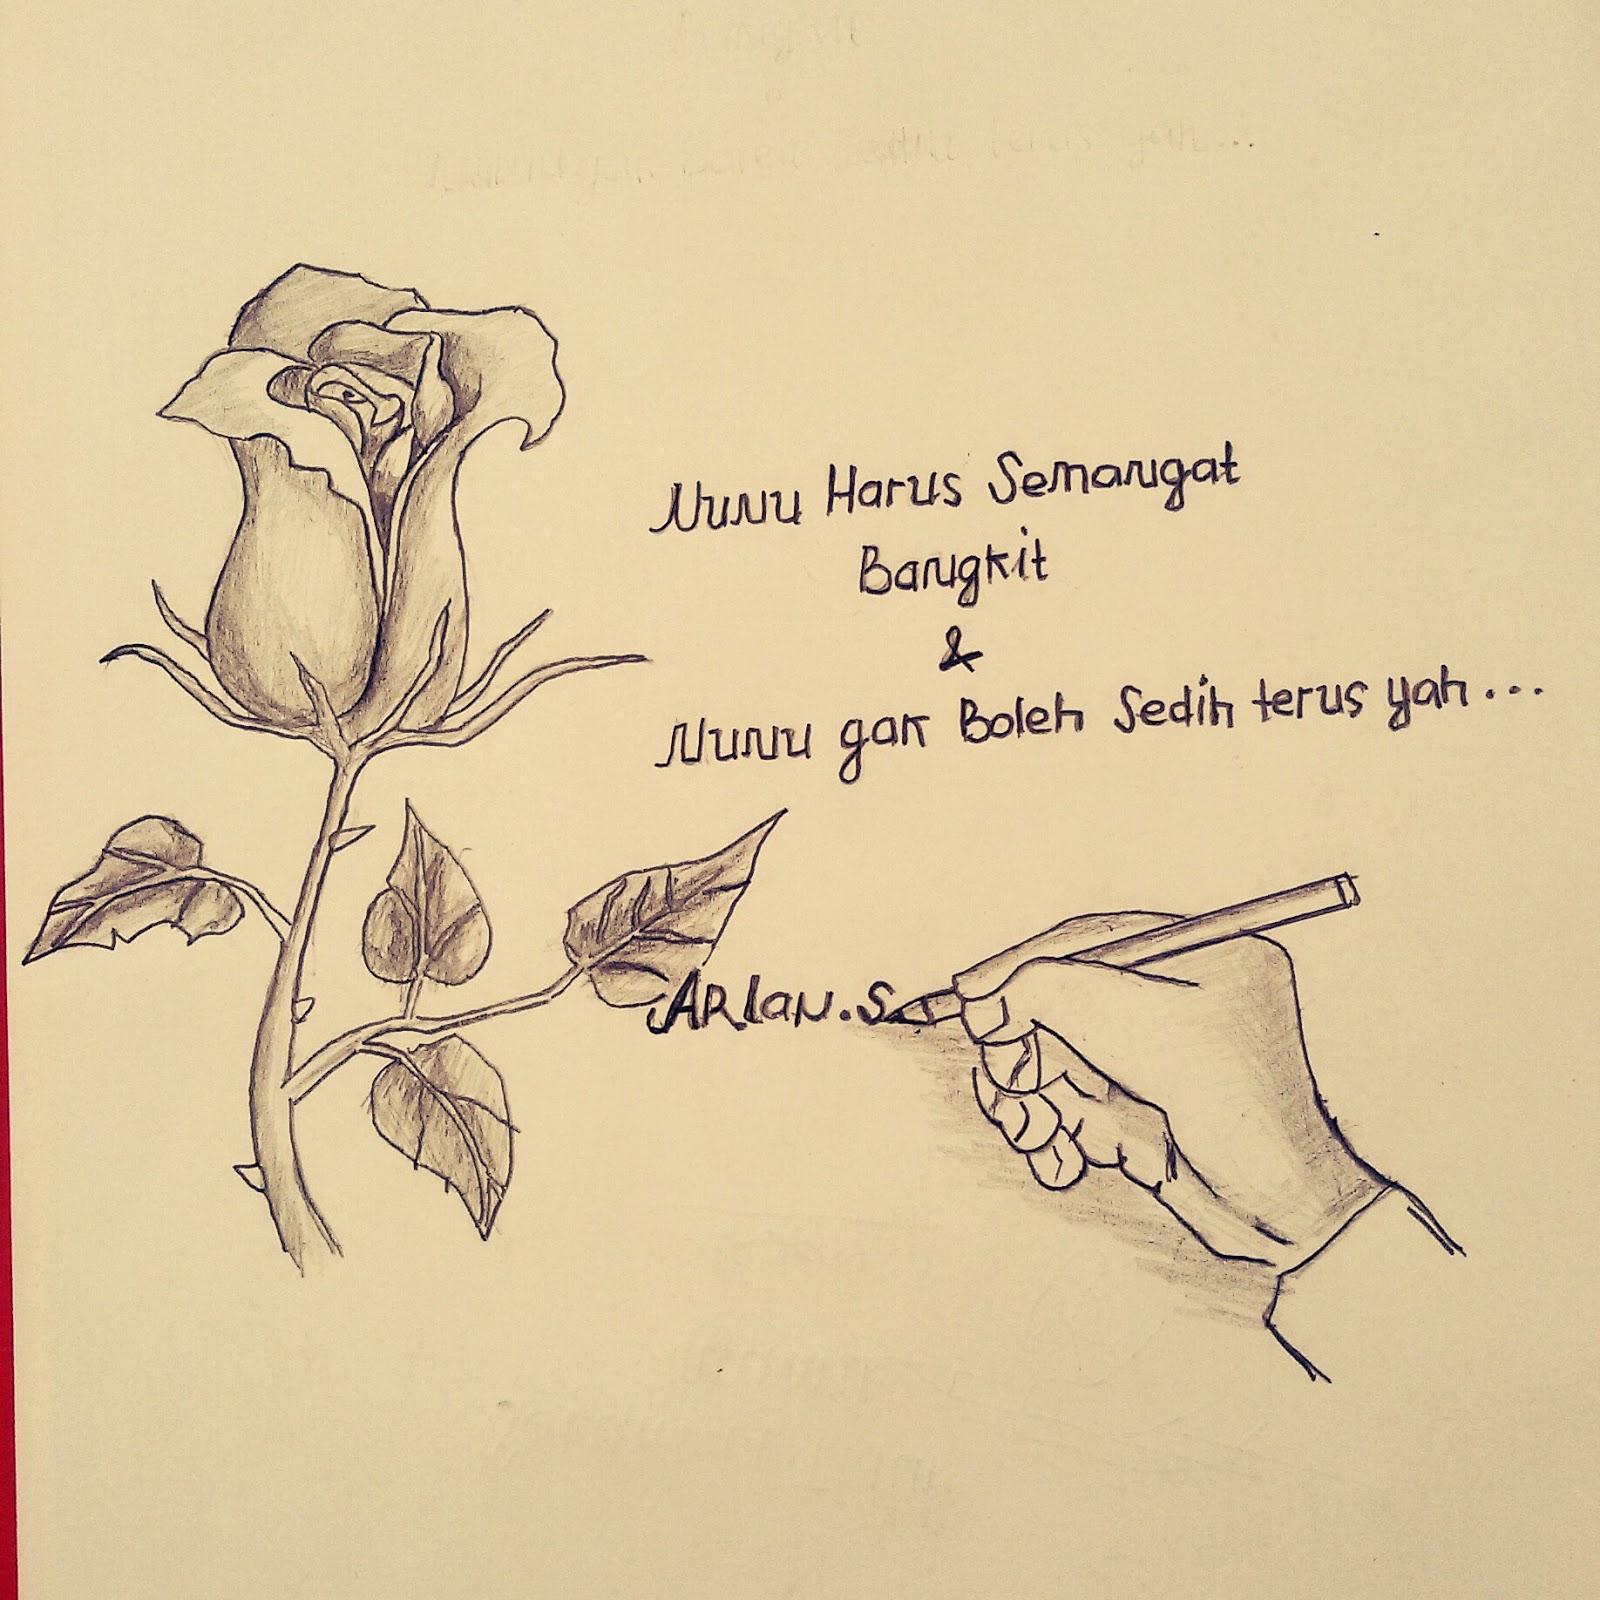 Nunu Harus Semangat
Bangkit
&
Nunu gak Boleh Sedih terus yah...
ARlan.S